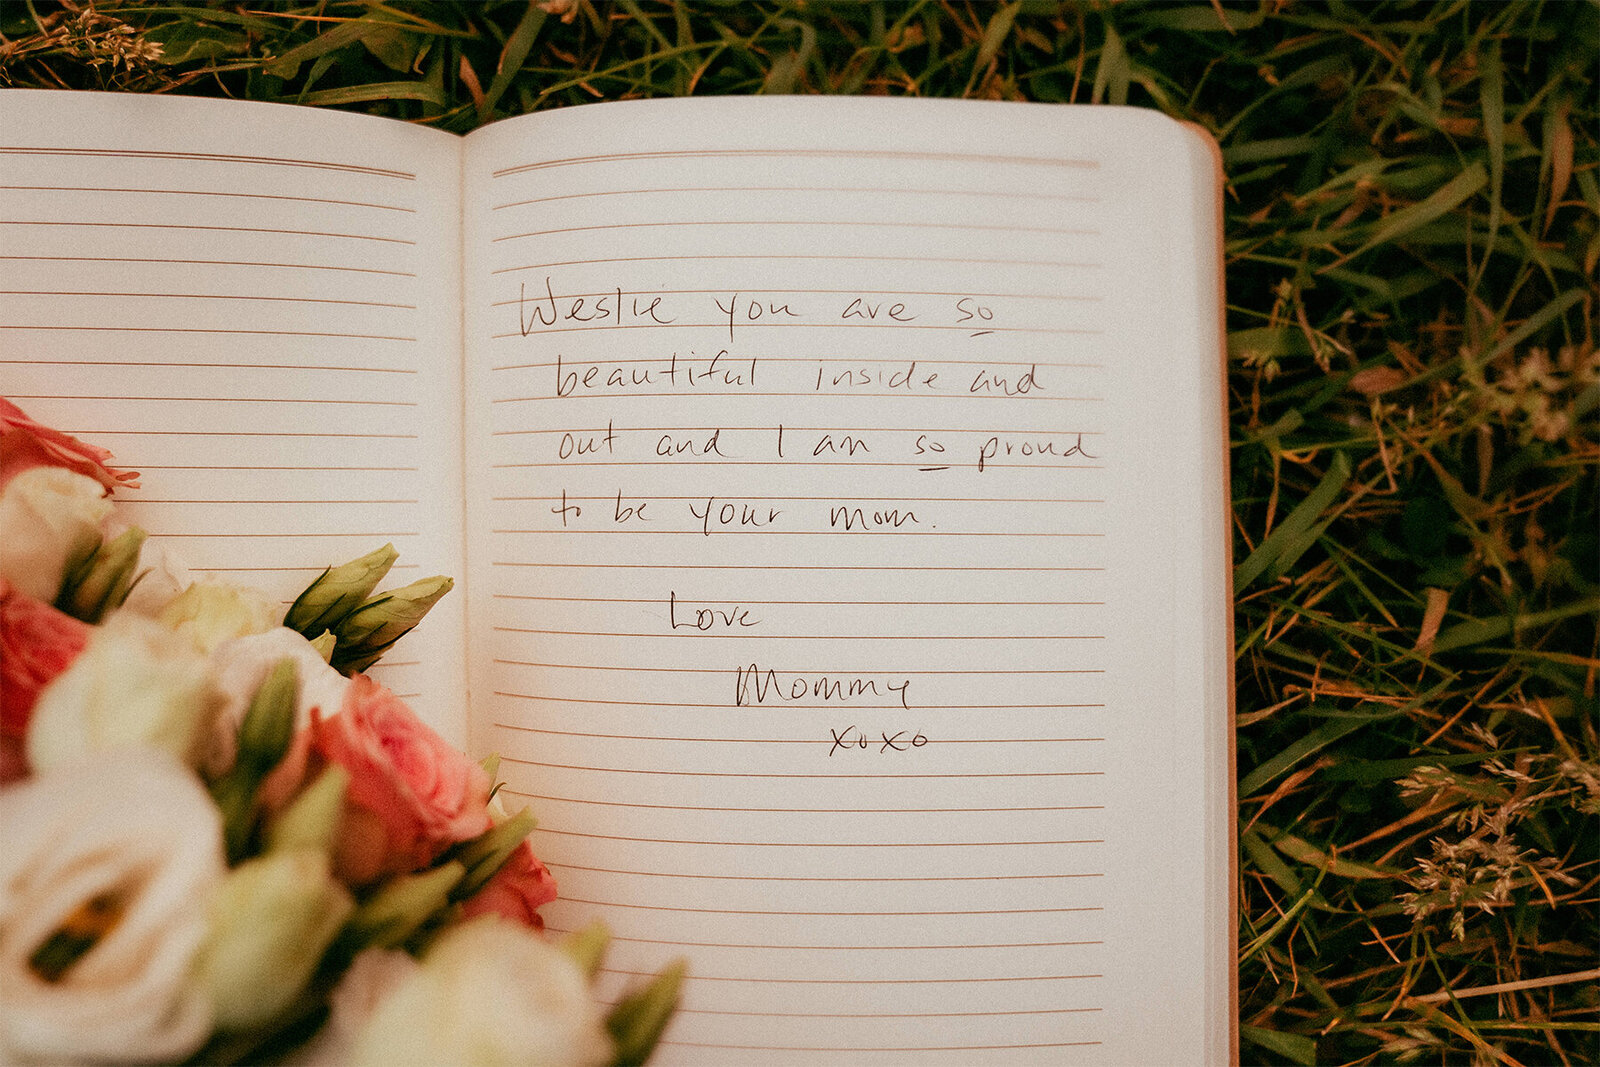 Weslie you are so
beautiful inside and
out and I am so proud
to be your mom.
Love
Mommy
xoxo